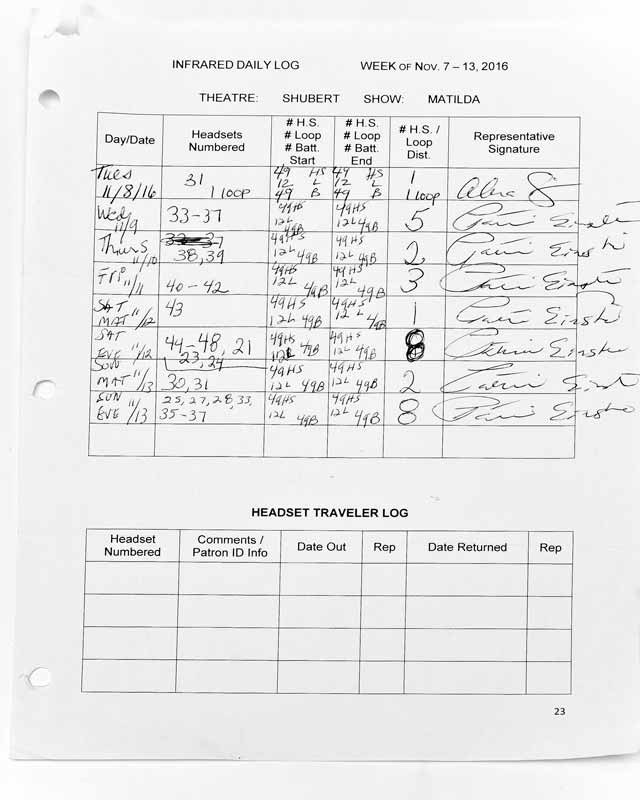 INFRARED DAILY LOG WEEK OF NOV. 7 – 13, 2016
THEATRE: SHUBERT SHOW: MATILDA
Day/Date Headsets Numbered # H.S. # Loop # Batt. Start # H.S. # Loop # Batt. End # H.S. / Loop Dist. Representative Signature
Tues 11/8/16 31 1 loop 49 HS 12 L 49 B 49 HS 12 L 49 B 1 1 loop
Wed 11/9 33-37 49HS 12L 49B 49HS 12L 49B 5
Thurs 11/10 38,39 49HS 12L 49B 49HS 12L 49B 2
Fri 11/11 40-42 49HS 12L 49B 49HS 12L 49B 3
SAT MAT 11/12 43 49HS 12L 49B 49HS 12L 49B 1
SAT EVE 11/12 44-48, 21 23,24 49HS 12L 49B 49HS 12L 49B 8
SUN MAT 11/13 30,31 49HS 12L 49B 49HS 12L 49B 2
SUN EVE 11/13 25, 27, 28, 33, 35-37 49HS 12L 49B 49HS 12L 49B 8
HEADSET TRAVELER LOG
Headset Numbered Comments / Patron ID Info Date Out Rep Date Returned Rep
23